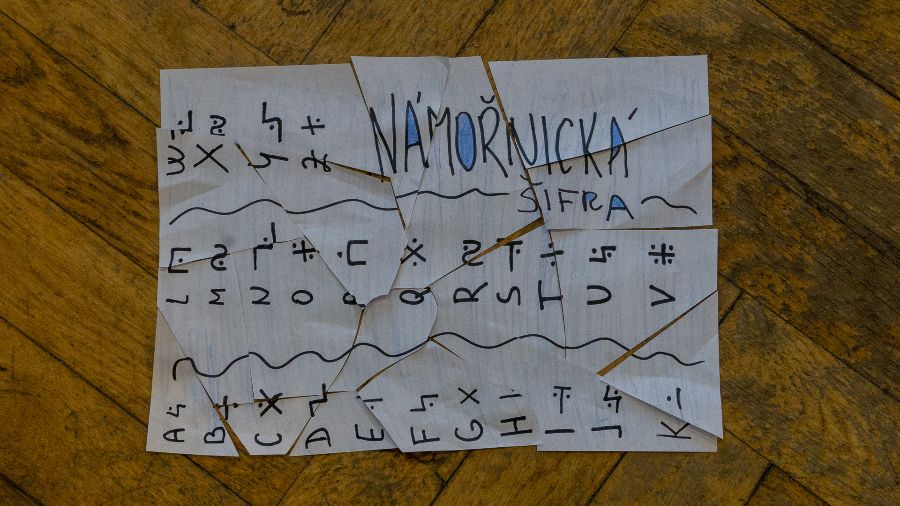 NÁMOŘNICKÁ
ŠIFRA
A B C D E F G H I J K
L M N O P Q R S T U V
W X Y Z